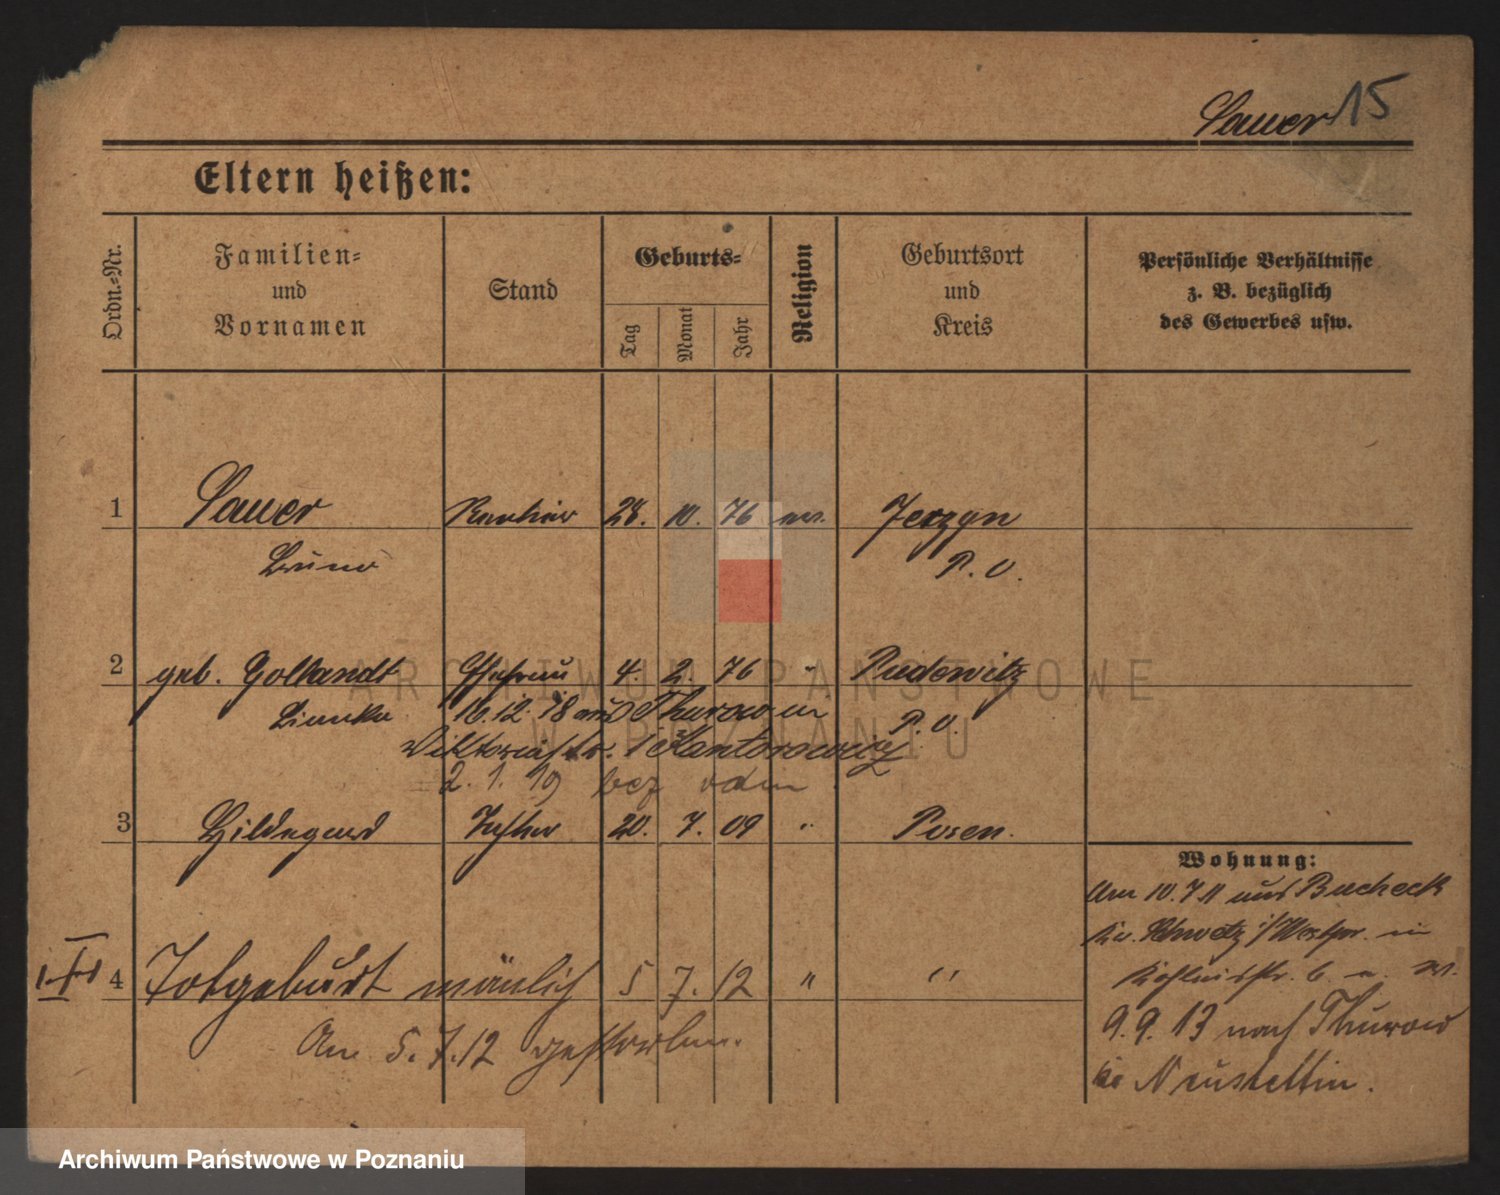 Sauer 15
Eltern heißen:
Ordn.-Nr.
Familien-
und
Vornamen
Stand
Geburts-
Tag
Monat
Jahr
Religion
Geburtsort
und
Kreis
Persönliche Verhältnisse
z. B. bezüglich
des Gewerbes usw.
1 Sauer 28. 10. 76 ev. Jerzyn
Bruno P. O.
2 geb. Gollandt Ehefrau 4. 2. 76 " Pudewitz
16.12.18 aus Thurow in P. O.
Viktoriastr. Kantorowicz
2. 1. 19
3 Hildegard Tochter 20. 7. 09 " Posen.
Wohnung:
Am 10.7.11 aus Bucheck
Kr. Schwetz i/Westpr. in
6
4 Totgeburt mänlich 5 7. 12 " "
Am 5.7.12 gestorben.
9.9.13 nach Thurow
Neustettin.
ARCHIWUM PAŃSTWOWE
W POZNANIU
Archiwum Państwowe w Poznaniu